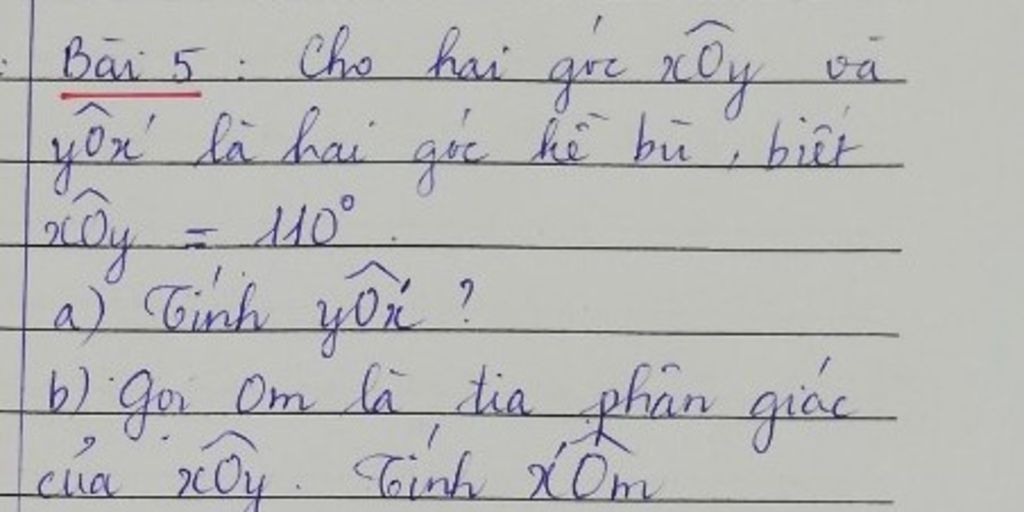 Bài 5 : Cho hai góc xÔy và
yÔx' là hai góc kề bù, biết
xÔy = 110°.
a) Tính yÔx' ?
b) Gọi Om là tia phân giác
của xÔy. Tính x'Ôm